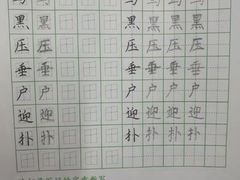 黑 黑 黑 黑 黑 黑
压 压 压 压 压 压
垂 垂 垂 垂 垂
户 户 户 户 户
迎 迎 迎 迎 迎
扑 扑 扑 扑 扑